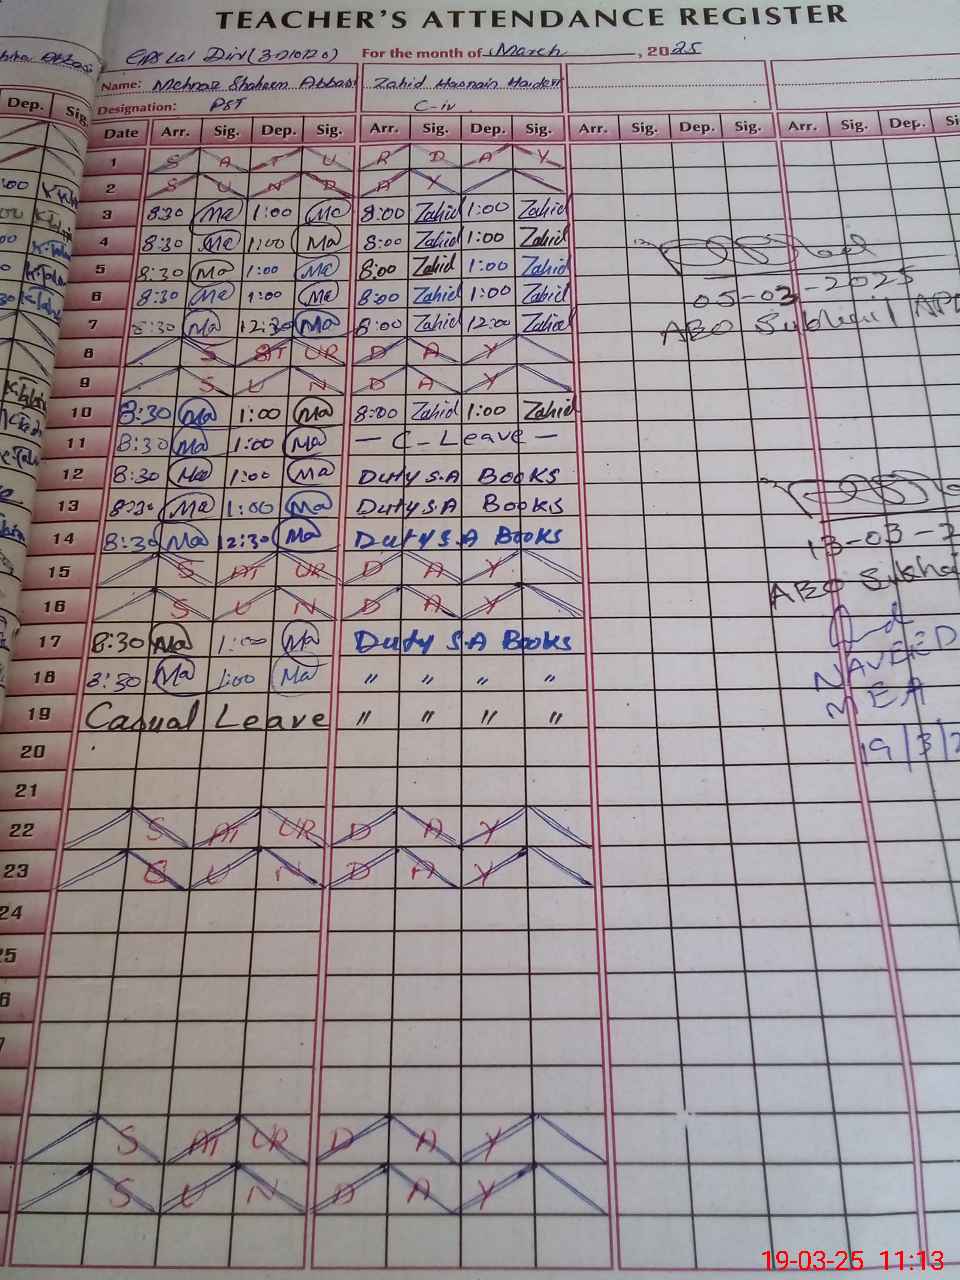 TEACHER'S ATTENDANCE REGISTER
GPS Lal Din (37010120) For the month of March, 2025
Name: Mehnaz Shaheen Abbasi Zahid Hasnain Haideri
Designation: PST C-iv
Dep. Sig. Date Arr. Sig. Dep. Sig. Arr. Sig. Dep. Sig. Arr. Sig. Dep. Sig. Arr. Sig. Dep.
1 S A T U R D A Y
2 S U N D A Y
3 8:30 Ma 1:00 Ma 8:00 Zahid 1:00 Zahid
4 8:30 Ma 1:00 Ma 8:00 Zahid 1:00 Zahid
5 8:30 Ma 1:00 Ma 8:00 Zahid 1:00 Zahid
6 8:30 Ma 1:00 Ma 8:00 Zahid 1:00 Zahid
05-03-2025
7 8:30 Ma 12:30 Ma 8:00 Zahid 12:00 Zahid
ABO
8 S AT UR D A Y
9 S U N D A Y
10 8:30 Ma 1:00 Ma 8:00 Zahid 1:00 Zahid
11 8:30 Ma 1:00 Ma — C - Leave —
12 8:30 Ma 1:00 Ma Duty S.A Books
13 8:30 Ma 1:00 Ma Duty S.A Books
14 8:30 Ma 12:30 Ma Duty S.A Books
13-03-2
15 S AT UR D A Y
ABO
16 S U N D A Y
17 8:30 Ma 1:00 Ma Duty S.A Books
NAVEED
18 8:30 Ma 1:00 Ma " " " "
MEA
19 Casual Leave " " " "
19/3/2
20
21
22 S AT UR D A Y
23 S U N D A Y
24
25
6
7
S AT UR D A Y
S U N D A Y
19-03-25 11:13